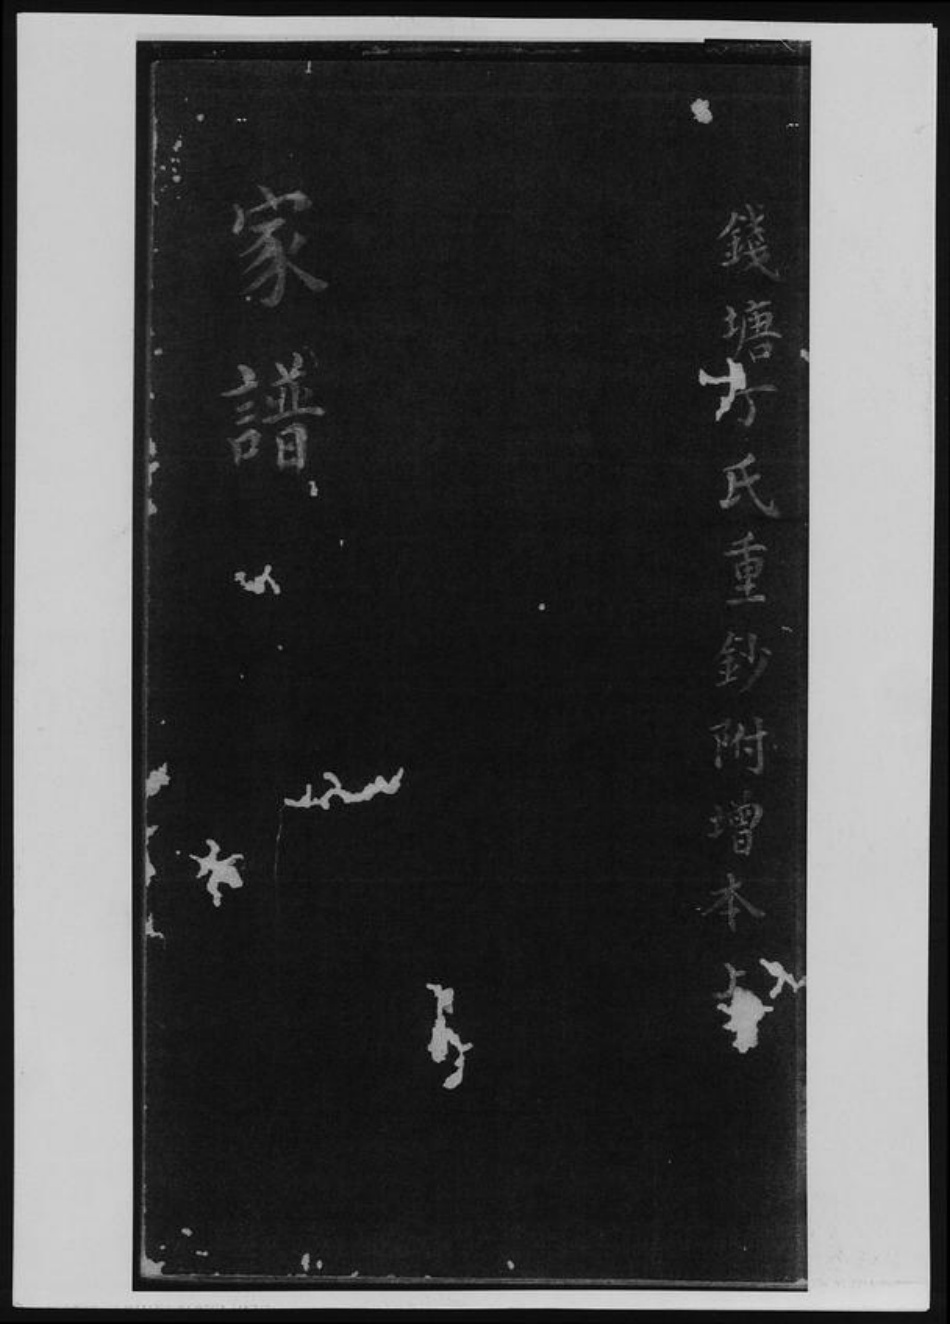 錢塘 氏重鈔附增本
家譜